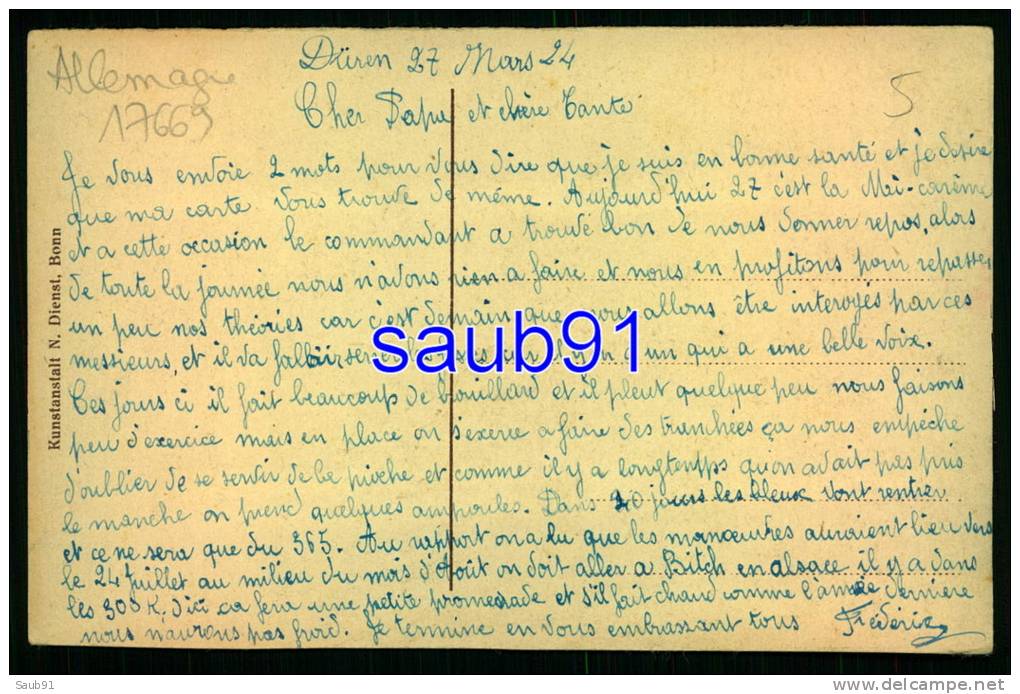 Allemagne
17669
5
Düren 27 Mars 24
Cher Papa et chère Tante
Je vous envoie 2 mots pour vous dire que je suis en bonne santé et je désire
que ma carte vous trouve de même. Aujourd'hui 27 c'est la Mi-carême
et a cette occasion le commandant a trouvé bon de nous donner repos, alors
de toute la journée nous n'avons rien a faire et nous en profitons pour repasser
un peu nos théories car c'est demain que nous allons être interogés par ces
messieurs, et il va falloir, il y en a un qui a une belle voix.
Ces jours ci il fait beaucoup de brouillard et il pleut quelque peu nous faisons
peu d'exercice mais en place on s'exerce a faire des tranchées ça nous empêche
d'oublier de se servir de la pioche et comme il y a longtemps qu'on avait pas pris
le manche on prend quelques ampoules. Dans 20 jours les bleux vont rentrer
et ce ne sera que du 365. Au rapport on a lu que les manœuvres auraient lieu vers
le 24 Juillet au milieu du mois d'Août on doit aller a Bitch en alsace il y a dans
les 300 K. d'ici ca fera une petite promenade et s'il fait chaud comme l'année dernière
nous n'aurons pas froid. Je termine en vous embrassant tous Fréderic
Kunstanstalt N. Dienst, Bonn
saub91
Saub91
delcampe.net